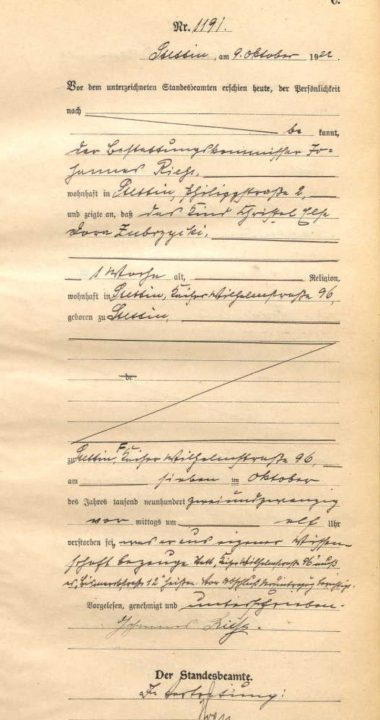 C.
Nr. 1191.
Stettin, am 9. Oktober 1922.
Vor dem unterzeichneten Standesbeamten erschien heute, der Persönlichkeit
nach
be kannt,
der Bestattungskommissar Jo-
hannes Riehs,
wohnhaft in Stettin, Philippstraße 2,
und zeigte an, daß das Kind Christel Else
Dora Zubrzycki,
1 Woche alt, Religion,
wohnhaft in Stettin, Kaiser Wilhelmstraße 96,
geboren zu Stettin,
de
zu Stettin, Kaiser Wilhelmstraße 96,
am sieben ten Oktober
des Jahres tausend neunhundert zweiundzwanzig
vor mittags um elf Uhr
verstorben sei, was er aus eigener Wissen-
schaft bezeuge. Statt Kaiser Wilhelmstraße 96 muß
es, Bismarckstraße 12 heißen. Vor Abschluß
Vorgelesen, genehmigt und unterschrieben.
Johannes Riehs.
Der Standesbeamte.
In Vertretung: